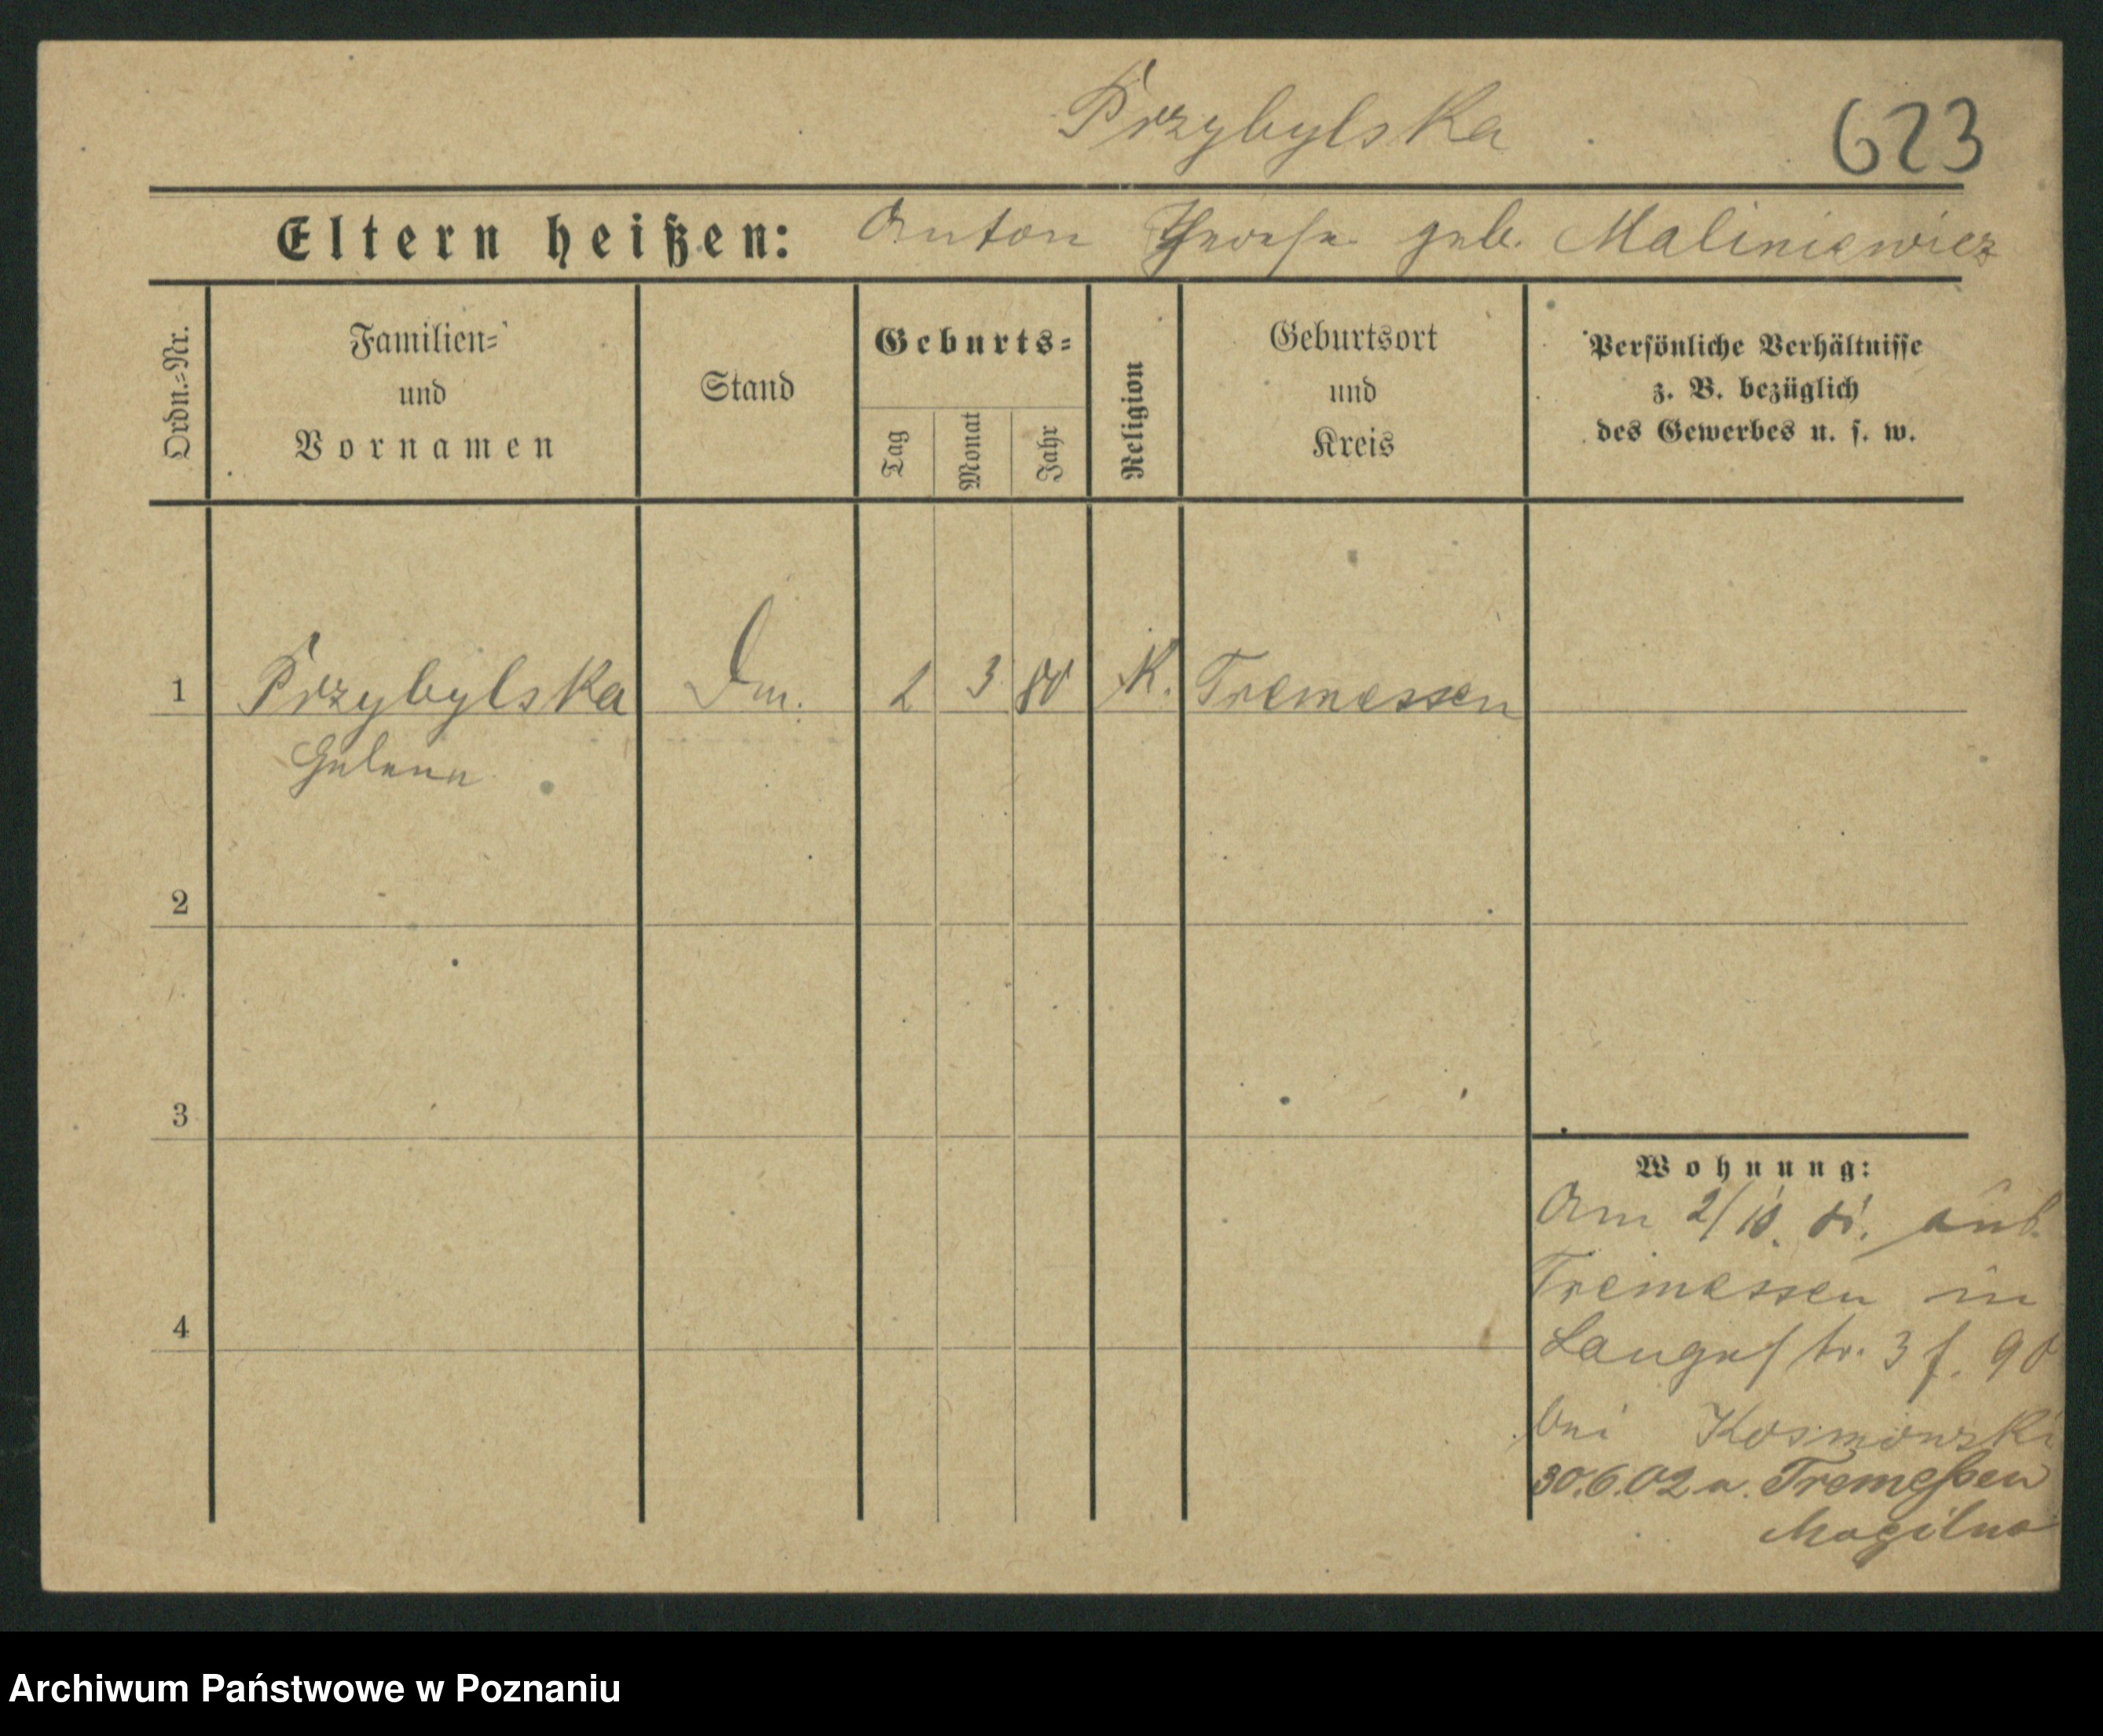 Przybylska
623
Eltern heißen: Anton geb. Maliniewicz
Ordn.-Nr.
Familien-
und
Vornamen
Stand
Geburts-
Tag
Monat
Jahr
Religion
Geburtsort
und
Kreis
Persönliche Verhältnisse
z. B. bezüglich
des Gewerbes u. s. w.
1 Przybylska 2 3 80 K. Tremessen
Helena
2
3
4
Wohnung:
Am 2/10. aus
Tremessen in
Langestr. 3
bei Kosmowski
30.6.02 n. Tremeßen
Mogilno
Archiwum Państwowe w Poznaniu